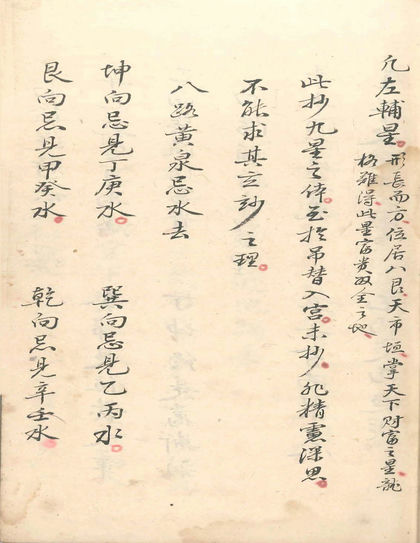 凢左輔星形長而方位居八艮天市垣掌天下财富之星龍
格难得此星富贵双全之地
此抄九星之体至於吊替入宫未抄非精
深思
不能求其玄玅之理
八路黄泉忌水去
坤向忌見丁庚水 巽向忌見乙丙水
艮向忌見甲癸水 乾向忌見辛壬水